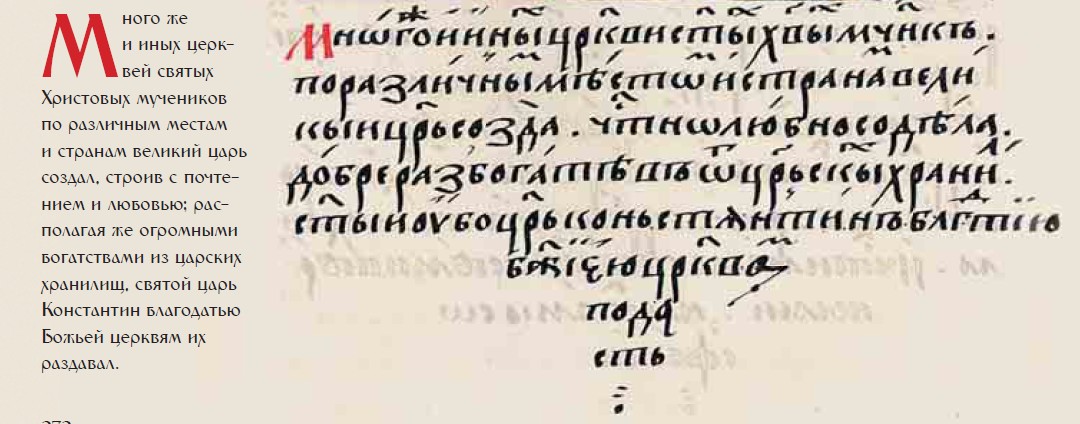 Много же
и иных церк-
вей святых
Христовых мучеников
по различным местам
и странам великий царь
создал, строив с почте-
нием и любовью; рас-
полагая же огромными
богатствами из царских
хранилищ, святой царь
Константин благодатью
Божьей церквям их
раздавал.
Мнѡгоиины црквистых хвы мчнкъ .
поразличны мѣстѡ истрана вели
кыи црь созда . чтнѡ любвно содѣла.
добре разбогатѣвъ ѿ црьскы храни.
стыи оубо црь коньстѧнтинъ блгтїю
бжїею црква
пода
еть